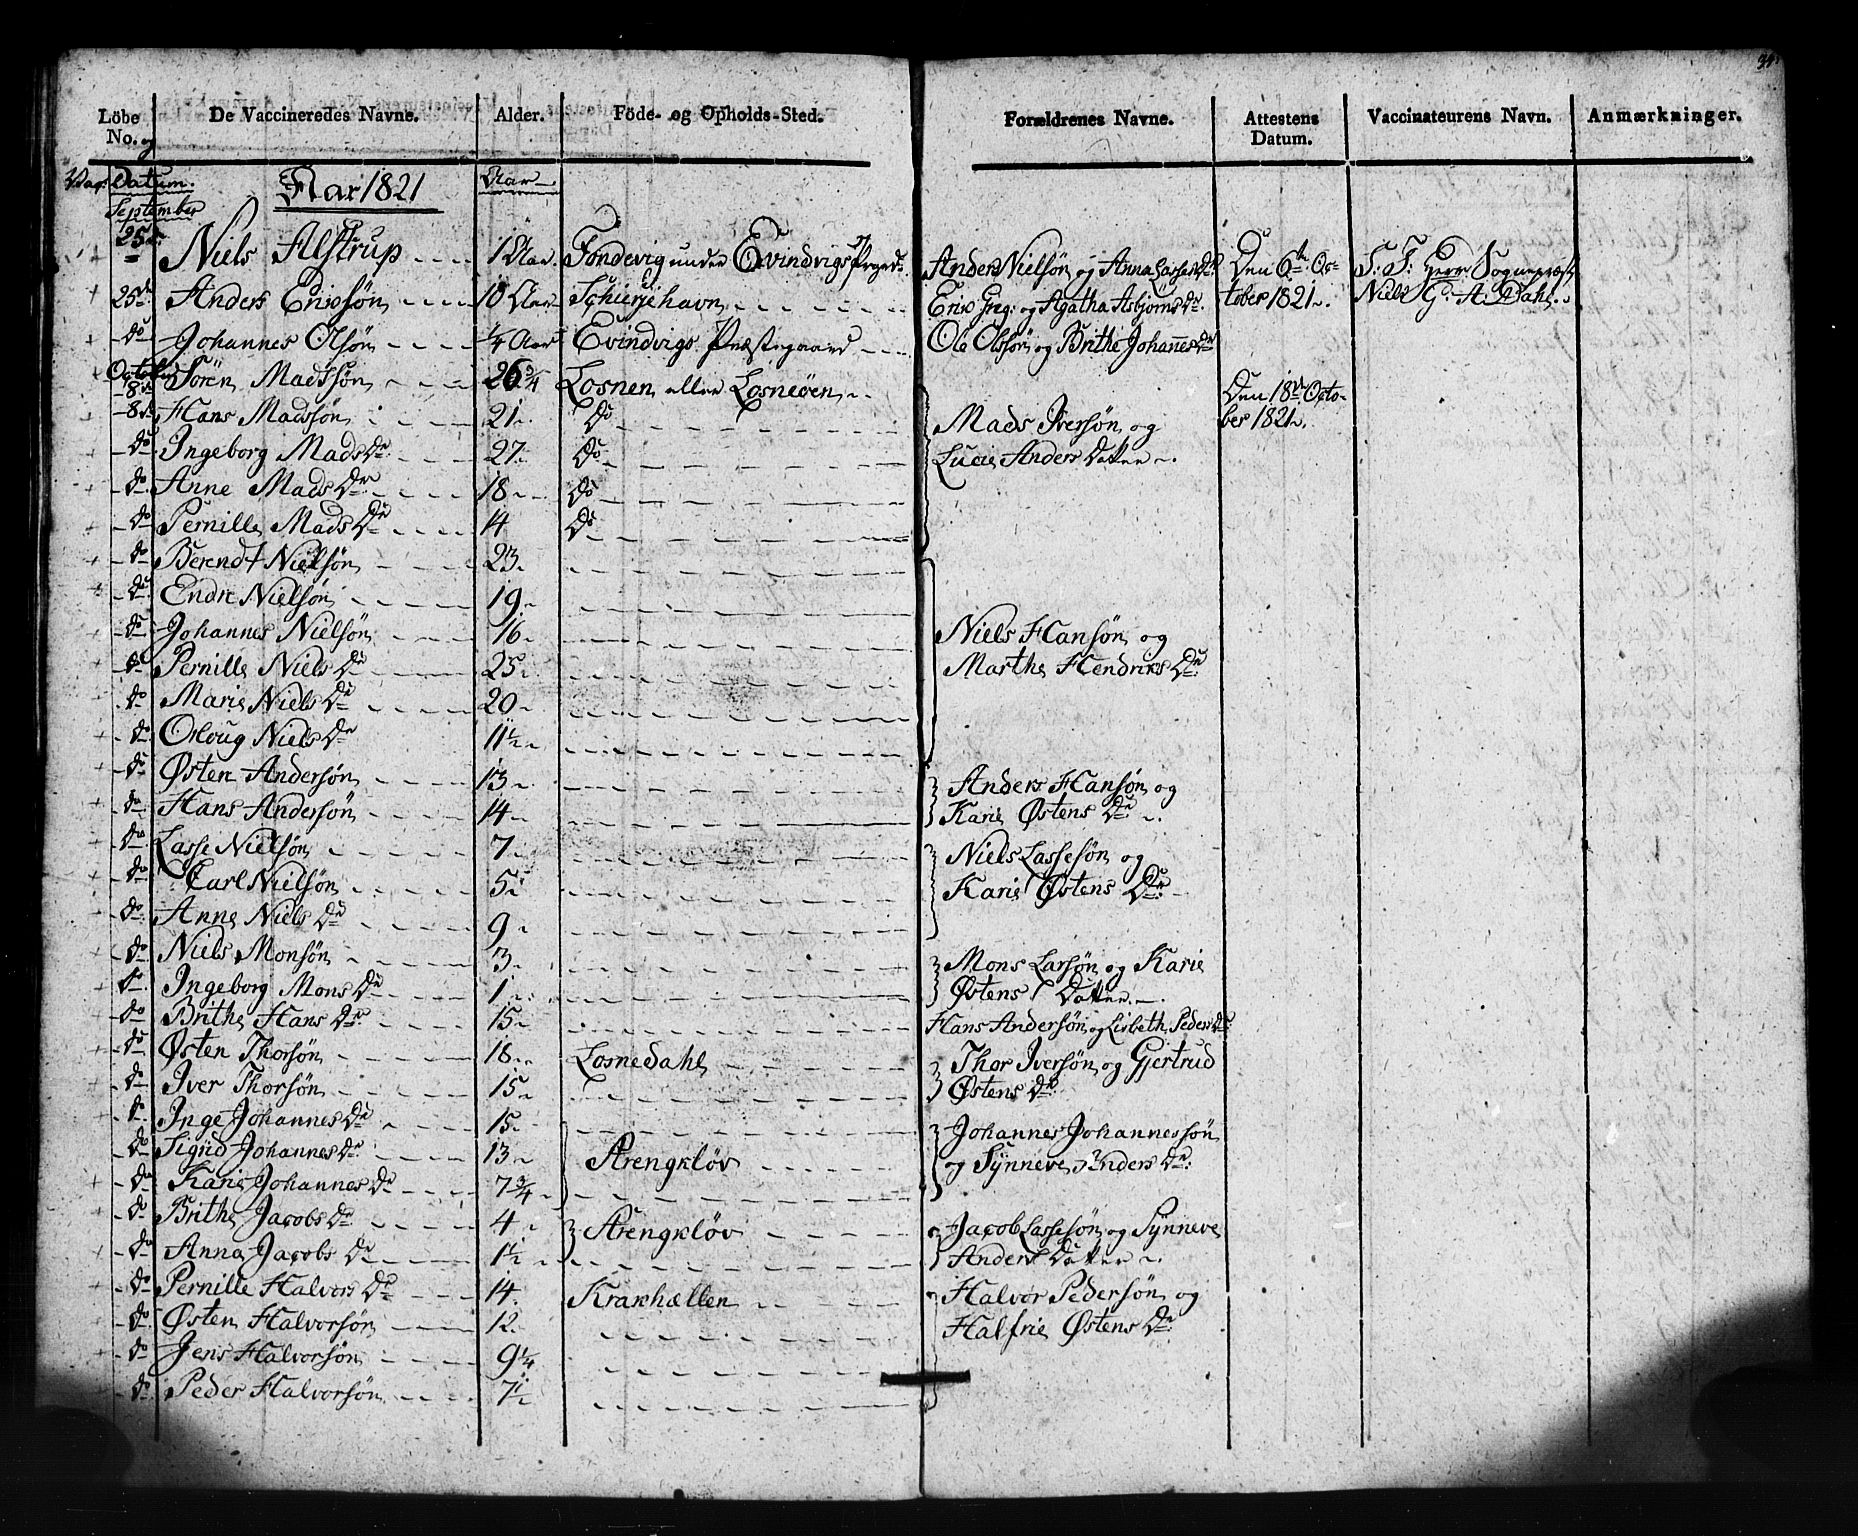 34
Löbe No. og De Vaccineredes Navne. Alder. Föde- og Opholds-Sted. Forældrenes Navne. Attestens Datum. Vaccinateurens Navn. Anmærkninger.
Datum. Aar 1821 Aar
September
25de Niels Alstrup 1 Aar. Fondevig under Evindvigs Præged. Anders Nielsøn og Anna Lasses Dr. Den 6te Oc- S: T: Herr Sogneprest
25de Anders Ericsøn 10 Aar Schierjehavn Eric Greg: og Agatha Asbjørns Dr tober 1821. Niels G. A. Dahl.
do Johannes Olsøn 1/4 Aar Evindvigs Præstegaard Ole Olssøn og Brithe Johannes Dr
October
8de Søren Madssøn 26 3/4 Losnen eller Losneøen Den 18de Octo-
8de Hans Madssøn 21 Do Mads Iversøn og ber 1821.
do Ingeborg Mads Dr 27 Do Lucie Anders Datter
do Anne Mads Dr 18 Do
do Pernille Mads Dr 14 Do
do Berendt Nielsøn 23
do Endre Nielsøn 19
do Johannes Nielsøn 16 Niels Hansøn og
do Pernille Niels Dr 25 Marthe Hendriks Dr
do Marie Niels Dr 20
do Oloug Niels Dr 11 1/2
do Østen Andersøn 13 Anders Hansøn og
do Hans Andersøn 14 Karie Østens Dr
do Lasse Nielsøn 7 Niels Lassesøn og
do Carl Nielsøn 5 Karie Østens Dr
do Anne Niels Dr 9
do Niels Monsøn 3 Mons Larsøn og Karie
do Ingeborg Mons Dr 1 Østens Datter
do Brithe Hans Dr 15 Hans Andersøn og Lisbeth Peders Dr
do Østen Thorsøn 18 Losnedahl Thor Iversøn og Gjertrud
do Iver Thorsøn 15 Østens Dr
do Inge Johannes Dr 15 Johannes Johannessøn
do Sigrid Johannes Dr 13 Arengkløv og Synneve Anders Dr
do Karie Johannes Dr 7 3/4
do Brithe Jacobs Dr 4 Arengkløv Jacob Lassesøn og Synneve
do Anna Jacobs Dr 1 1/2 Anders Datter
do Pernille Halvors Dr 14 Krakhællen Halvor Pedersøn og
do Østen Halvorsøn 12 Halfrie Østens Dr
do Jens Halvorsøn 9 1/4
do Peder Halvorsøn 7 1/2